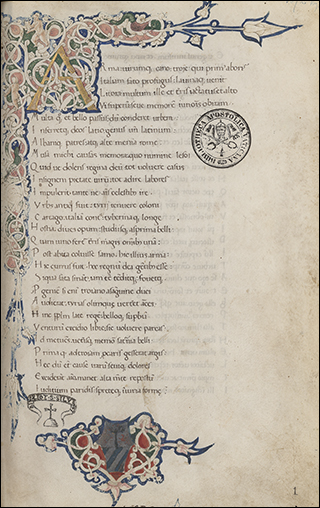 Arma uirumq; cano: troie qui primus ab oris
Italiam fato profugus lauinaq; uenit
Litora multum ille et terris iactatus et alto
memorem iunonis ob iram
Multa q; et bello passus dum conderet urbem
Inferretq; deos latio genus un latinum
Albaniq; patres atq; alte menia rome
Musa mihi causas memora quo numine leso
Quid ue dolens regina deum tot uoluere casus
Insignem pietate uirum tot adire labores
Impulerit tante ne animis celestibus ire
Vrbs antiqua fuit tyrii tenuere coloni
Cartago italiam contra tyberinaq; longe
Hostia diues opum studiisq; asperrima belli
Quam iuno fertur terris magis omnibus unam
Post abita coluisse samo hic illius arma
Hic currus fuit hoc regnum dea gentibus esse
Si qua fata sinant iam tum tenditq; fouetq;
Progeniem sed enim troiano a sanguine duci
Audierat tyrias olim que uerteret arces
Hinc populum late regem belloq; superbum
Venturum excidio libie sic uoluere parcas
Id metuens ueterisq; memor saturnia belli
Prima q; ad troiam pro caris gesserat argis
Nec dum et iam cause irarum seuiq; dolores
Exciderant animo manet alta mente repostum
Iuditium paridis spreteq; iniuria forme
BIBLIOTHECA APOSTOLICA VATICANA
1